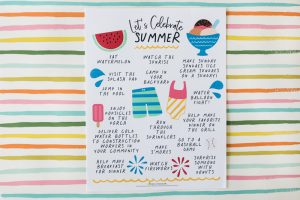 Let's Celebrate
SUMMER
EAT
WATERMELON
WATCH THE
SUNRISE
MAKE SUNDAY
SUNDAES (ICE
CREAM SUNDAES
ON A SUNDAY)
VISIT THE
SPLASH PAD
CAMP IN
YOUR
BACKYARD
JUMP IN THE
POOL
WATER
BALLOON
FIGHT
ENJOY
POPSICLES
ON THE
PORCH
HELP MAKE
YOUR FAVORITE
DINNER ON
THE GRILL
DELIVER COLD
WATER BOTTLES
TO CONSTRUCTION
WORKERS IN
YOUR COMMUNITY
RUN
THROUGH
THE
SPRINKLERS
GO TO A
BASEBALL
GAME
MAKE
S'MORES
HELP MAKE
BREAKFAST
FOR DINNER
WATCH
FIREWORKS
SURPRISE
SOMEONE
WITH
DONUTS